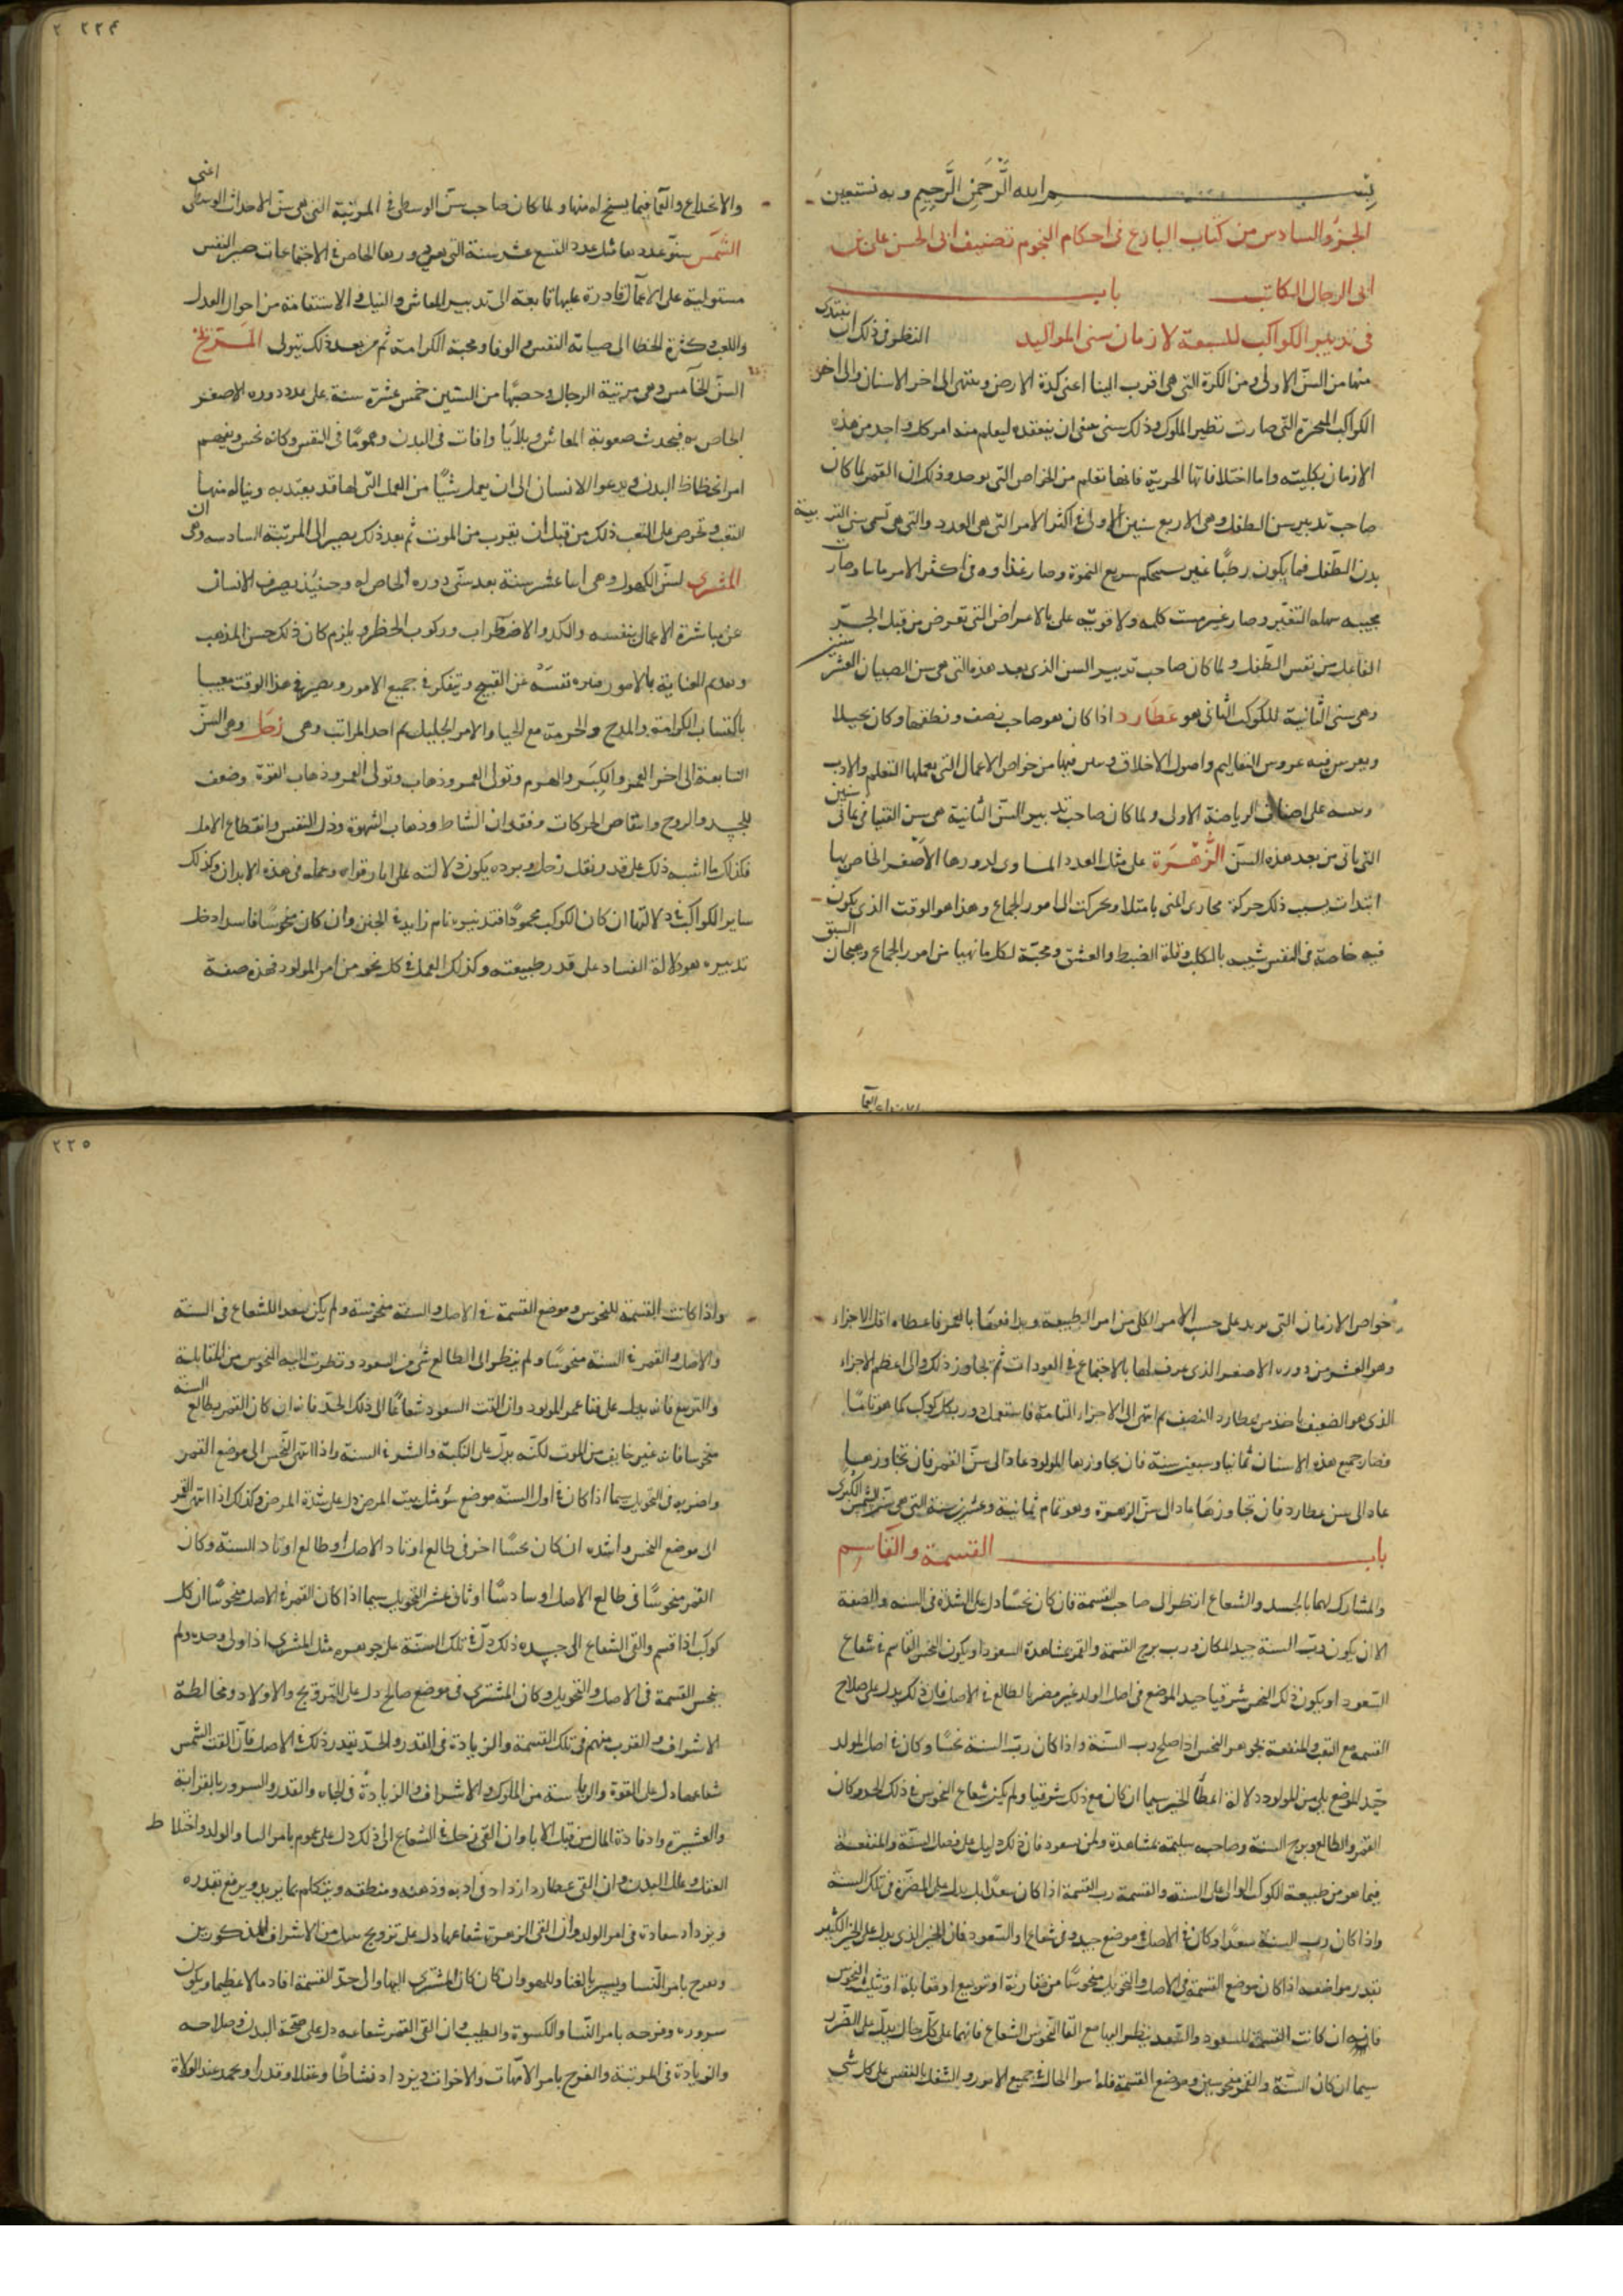 بسم الله الرحمن الرحيم وبه نستعين
الجزؤ السادس من كتاب البارع فى احكام النجوم تصنيف ابى الحسن على بن
ابى الرجال الكاتب باب
فى تدبير الكواكب للسبعة لازمان سنى المواليد النظر فى ذلك ان نبتدى
منها من السن الاولى ومن الكرة التى هى اقرب الينا اعنى كرة الارض وينتهى الى اخر الاسنان والى اخر
الكواكب المتحيرة التى صارت نظير الملوك وذلك شى ينبغى ان نتفقده ليعلم منه امر كل واحد من هذه
الازمان بكليته واما اختلافاتها الجزية فانها تعلم من الخواص التى توجد وذلك ان القمر لما كان
صاحب تدبير سن الطفل وهى الاربع سنين الاولى فى اكثر الامر التى هى العدد والتى هى تسمى سن التربية
بدن الطفل فما يكون رطبا غير مستحكم سريع النموة وصار غذاوه فى اكثر الامر ماييا وصارت
سهلة التغير وصار غير كلمه ولا قوية على بالامراض التى تعرض من قبل الجر
الفاعل من نفس الطفل ولما كان صاحب تدبير السن الذى بعد هذه التى هى سن الصبيان العشر سنين
وهى سنى الثانية للكوكب الثانى هو عطارد اذا كان هو صاحب نصف ونطقها وكان
ويغرس فيه عروس التعاليم واصول الاخلاق فيها من خواص الاعمال التى يعملها التعلم والادب
على اصناف الرياضة الاولى ولما كان صاحب تدبير السن الثانية هى سن الفتيا فى ثمانى سنين
التى ياتى من بعد هذه السن الزهرة على مثل العدد المساوى لدورها الاصغر الخاص بها
ابتدات بسبب ذلك حركة مجارى المنى بامتلا وتحركت الى امور الجماع وهذا هو الوقت الذى يكون
فيه خاصة فى النفس شبيه بالكلب وقلة الضبط والعشق ومحبة لكل ما تهيا من امور الجماع وهيجان السبق
٢٢٤
والانخداع والعما فيما يسنح له منها ولما كان صاحب سن الوسطى فى المرتبة التى هى سن الاحداث الوسطى اعنى
الشمس سنو عددها مثل عدد التسع عشر سنة التى هى دورها الخاص فى الاجتماعات صير النفس
مستولية على الاعمال قادرة عليها تابعة الى تدبير المعاش والنيل والاستقامة من احوال العدل
واللعب وكثرة الخطا الى صيانة النفس والوفا ومحبة الكرامة ثم من بعد ذلك يتولى المريخ
السن الخامس وهى مرتبة الرجال وحصتها من السنين خمس عشرة سنة على عدد دوره الاصغر
الخاص به فيحدث صعوبة المعاش وبلايا وافات فى البدن وهموما فى النفس وكانه نحس ويفهم
امر انحطاط البدن ويدعوا الانسان الى ان يعمل شيا من العمل التى لها قد يعتد به ويناله منها
التعب ويحرص على التعب ذلك من قبل ان يقرب من الموت ثم بعد ذلك يصير الى المرتبة السادسه وهى ان
المشترى لسن الكهول وهى اثنا عشر سنة بعد سنى دوره الخاص له وحينئذ يصرف الانسان
عن مباشرة الاعمال بنفسه والكد والاضطراب وركوب الخطر ويلزم كان ذلك حسن المذهب
العناية بالامور نفسه عن القبيح ويتفكر فى جميع الامور ويصير فى هذا الوقت معيبا
باكتساب الكرامة والمدح والحرمة مع الحيا والامر الجليل ثم احد المراتب وهى زحل وهى السن
السابعة الى اخر العمر والكبر والهرم وتولى العمر وذهاب وتولى العمر وذهاب القوة وضعف
الجسد والروح وانتقاص الحركات وفقدان النشاط وذهاب الشهوة وذل النفس وانقطاع الامل
فكذلك ما اشبه ذلك على قدر ثقل زحل وبرده يكون دلالته على وعمله فى هذه الابدان وكذلك
ساير الكواكب فى دلالتها ان كان الكوكب محمودا فتدبيره تام زايد فى الجنس وان كان منحوسا فاسدا دخل
تدبيره هو دلالة الفساد على قدر طبيعته وكذلك العمل فى كل نحو من امر المولود فهذه صفة
خواص الازمان التى يزيد على حسب الامر الكلى من امر الطبيعة بالقمر فاعطاه اقل الاجزاء
وهو العشر من دوره الاصغر الذى عرف لها بالاجتماع فى العودات ثم تجاوز ذلك والى اعظم الاجزاء
الذى هو الضعيف باخذ من عطارد النصف ثم انتهى الى الاجزاء التامة فاستعمل دور كل كوكب كما هو تاما
فصار جميع هذه الاسنان ثمانيا وسبعين سنة فان تجاوزها المولود عاد الى سن القمر فان تجاوزها
عاد الى سن عطارد فان تجاوزها عاد الى سن الزهرة وهو تمام ثمانية وعشرين سنة التى هى سنى الشمس الكبرى
باب القسمة والقاسم
والمشارك لهما بالجسد والشعاع انظر الى صاحب القسمة فان كان نحسا دل على الشدة فى السنه والضعة
الا ان يكون رب السنة جيد المكان ورب برج القسمة والقمر بمشاهدة السعود او يكون النحس القاسم فى شعاع
السعود او يكون ذلك النحس شرقيا جيد الموضع فى اصل الولد غير مضر بالطالع فى الاصل فان ذلك يدل على صلاح
القسمه مع التعب والمنفعة بجوهر النحس اذا صلح رب السنة واذا كان رب السنة نحسا وكان فى اصل المولد
جيد الموضع للمولود دلالة اعطا الخير سيما ان كان مع ذلك شرقيا ولم يكن شعاع النحوس فى ذلك الحد وكان
القمر والطالع وبرج السنة وصاحبه سليمة بمشاهدة ولمن بسعود فان ذلك دليل على فضل السنة والمنفعة
فيما هو من طبيعة الكوكب الوالى على السنة والقسمة رب القسمة اذا كان سعدا بل يدل على المضرة فى تلك السنة
واذا كان رب السنة سعدا وكان فى الاصل فى موضع جيد وفى شعاع السعود فان الخير الذى يدل على الخير الكثير
بقدر مواضعه اذا كان موضع القسمة فى الاصل والتحويل منحوسا من مقارنة او تربيع او مقابلة او تثليث النحوس
فانه ان كانت القسمة للسعود والسعد ينظر اليها مع القا النحوس الشعاع فانهما على كل حال يدل على الضرر
سيما ان كان السنة والقمر منحوسين وموضع القسمة سوا الحال فى جميع الامور والشغل بالنفس على كل شى
٢٢٥
واذا كانت القسمة للنحوس وموضع القسمة فى الاصل والسنة منحوسة ولم يكن سعد اللشعاع فى السنة
والاصل والقمر فى السنة منحوسا ولم ينظر الى الطالع شى من السعود ونظرت اليه النحوس من المقابلة
والتربيع فانه يدل على فنا عمر المولود وان القت السعود شعاعا الى ذلك الحد فانه ان كان القمر بطالع السنة
منحوسا فانه غير خايف من الموت لكنه يدل على النكبة والشر فى السنة واذا انتهى النحس الى موضع القمر
واضر به فى التحويل سيما اذا كان فى اول السنة موضع سؤ مثل بيت المرض دل على شدة المرض وكذلك اذا انتهى القمر
الى موضع النحس واشده ان كان نحسا اخر فى طالع اوتاد الاصل او طالع اوتاد السنة وكان
القمر منحوسا فى طالع الاصل او سادسا او ثانى عشر التحويل سيما اذا كان القمر فى الاصل منحوسا ان كل
كوكب اذا قسم والقى الشعاع الى جسده ذلك دل فى تلك السنة على جوهره مثل المشترى اذا ولى وحده ولم
ينحس القسمة فى الاصل والتحويل وكان المشترى فى موضع صالح دل على التزويج والاولاد ومخالطة
الاشراف والقرب منهم فى تلك القسمة والزيادة فى القدر والحد بقدر ذلك فى الاصل فان القت الشمس
شعاعها دل على القوة والرياسة من الملوك والاشراف والزيادة فى الجاه والقدر والسرور بالقرابة
والعشيرة وافادة المال من قبل الابا وان القى زحل فى الشعاع الى ذلك دل على هموم بامر النسا والولد واختلاط
العقل وعلل البدن وان القى عطارد ازداد فى ادبه وذهنه ومنطقه ويتكلم بما يريد ويرفع بقدره
ويزداد سعادة فى امر الولد وان القى الزهرة شعاعها دل على تزويج من الاشراف المذكورين
ويفرح بامر النسا ويسير بالغنا واللهو وان كان المشترى اليها والى حد القسمة افاد مالا عظيما ويكون
سروره وفرحه بامر النسا والكسوة والطيب وان القى القمر شعاعه دل على صحة البدن وصلاحه
والزيادة فى المرتبة والفرح بامر الامهات والاخوات ويزداد نشاطا وعقلا وقدرا ويحمد عند الولاة